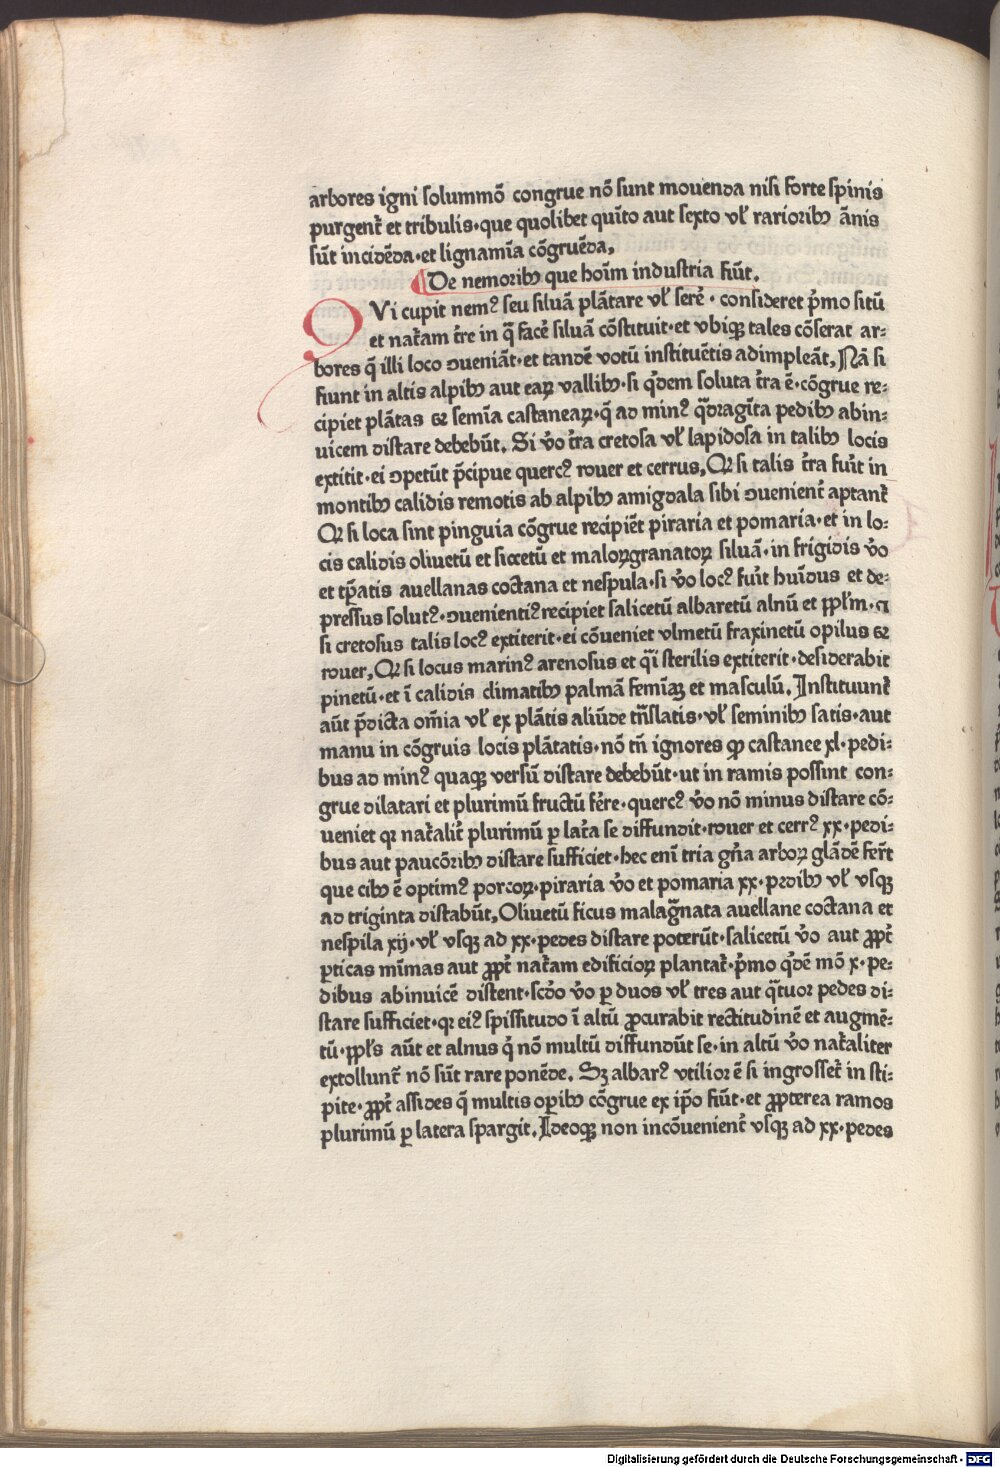 arbores igni solummō congrue nō sunt mouenda nisi forte spinis
purgent᷑ et tribulis·que quolibet quīto aut sexto vl᷑ rarioribꝫ ānis
sūt incidēda·et lignamīa cōgruēda,
¶De nemoribꝫ que hoīm industria fiūt.
QVi cupit nemꝰ seu siluā plātare vl᷑ serē·consideret p̄mo sitū
et nat᷑am t᷑re in q̄ facē siluā cōstituit·et vbiqꝫ tales cōserat ar⸗
bores q̄ illi loco ꝯueniāt·et tandē votū instituētis adimpleāt, Nā si
fiunt in altis alpibꝫ aut eaꝝ vallibꝫ·si q̇dem soluta t᷑ra ē·cōgrue re⸗
cipiet plātas ⁊ semīa castaneaꝝ·q̄ ad minꝰ q̄dragīta pedibꝫ abin⸗
uicem distare debebūt. Si v̇o t᷑ra cretosa vl᷑ lapidosa in talibꝫ locis
extitit·ei ꝯpetūt p̄cipue quercꝰ rouer et cerrus, Qꝛ si talis t᷑ra fu᷑it in
montibꝫ calidis remotis ab alpibꝫ amigdala sibi ꝯuenient᷑ aptant᷑
Qꝛ si loca sint pinguia cōgrue recipiēt piraria et pomaria·et in lo⸗
cis calidis oliuetū et siccetū et maloꝝgranatoꝝ siluā·in frigidis v̇o
et tp̄atis auellanas coctana et nespula·si v̇o locꝰ fu᷑it hu̅idus et de⸗
pressus solutꝰ·ꝯuenientiꝰ recipiet salicetū albaretū alnū et pp̄l᷑m·⁊
si cretosus talis locꝰ extiterit·ei cōueniet vlmetū fraxinetū opilus ⁊
rouer, Qꝛ si locus marinꝰ arenosus et q̄i sterilis extiterit·desiderabit
pinetū·et ī calidis climatibꝫ palmā femīaꝫ et masculū. Instituunt᷑
aūt p̄dicta om̄ia vl᷑ ex plātis aliūde tn̄slatis·vl᷑ seminibꝫ satis·aut
manu in cōgruis locis plātatis·nō tn̄ ignores ꝙ castanee xl·pedi⸗
bus ad minꝰ quaqꝫ versū distare debebūt·ut in ramis possint con⸗
grue dilatari et plurimū fructū fe᷑re·quercꝰ v̇o nō minus distare cō⸗
ueniet qꝛ nat᷑alit᷑ plurimū ꝑ lat᷑a se diffundit·rouer et cerrꝰ xx·pedi⸗
bus aut paucōribꝫ distare sufficiet·hec enī tria gn̄a arboꝝ glādē fer᷑t
que cibꝫ ē optimꝰ porcoꝝ·piraria v̇o et pomaria xx·pedibꝫ vl᷑ vsqꝫ
ad triginta distabūt, Oliuetū ficus malagr̄nata auellane coctana et
nespila xij·vl᷑ vsqꝫ ad xx·pedes distare poterūt·salicetū v̇o aut ꝓpt᷑
ꝑticas mīmas aut ꝓpt᷑ nat᷑am edificioꝝ plantat᷑·p̄mo q̇dē mō x·pe⸗
dibus abinuicē distent·scd̄o v̇o ꝑ duos vl᷑ tres aut q̄tuor pedes di⸗
stare sufficiet·qꝛ eiꝰ spissitudo ī altū ꝓcurabit rectitudinē et augmē⸗
tū·pp̄l᷑s aūt et alnus q̇ nō multū diffundūt se·in altū v̇o nat᷑aliter
extollunt᷑ nō sūt rare ponēde. Sꝫ albarꝰ vtilior ē si ingrosset᷑ in sti⸗
pite·ꝓpt᷑ assides q̄ multis oꝑibꝫ cōgrue ex ip̄o fiūt·et ꝓpterea ramos
plurimū ꝑ latera spargit. Ideoqꝫ non incōuenient᷑ vsqꝫ ad xx·pedes
Digitalisierung gefördert durch die Deutsche Forschungsgemeinschaft - DFG